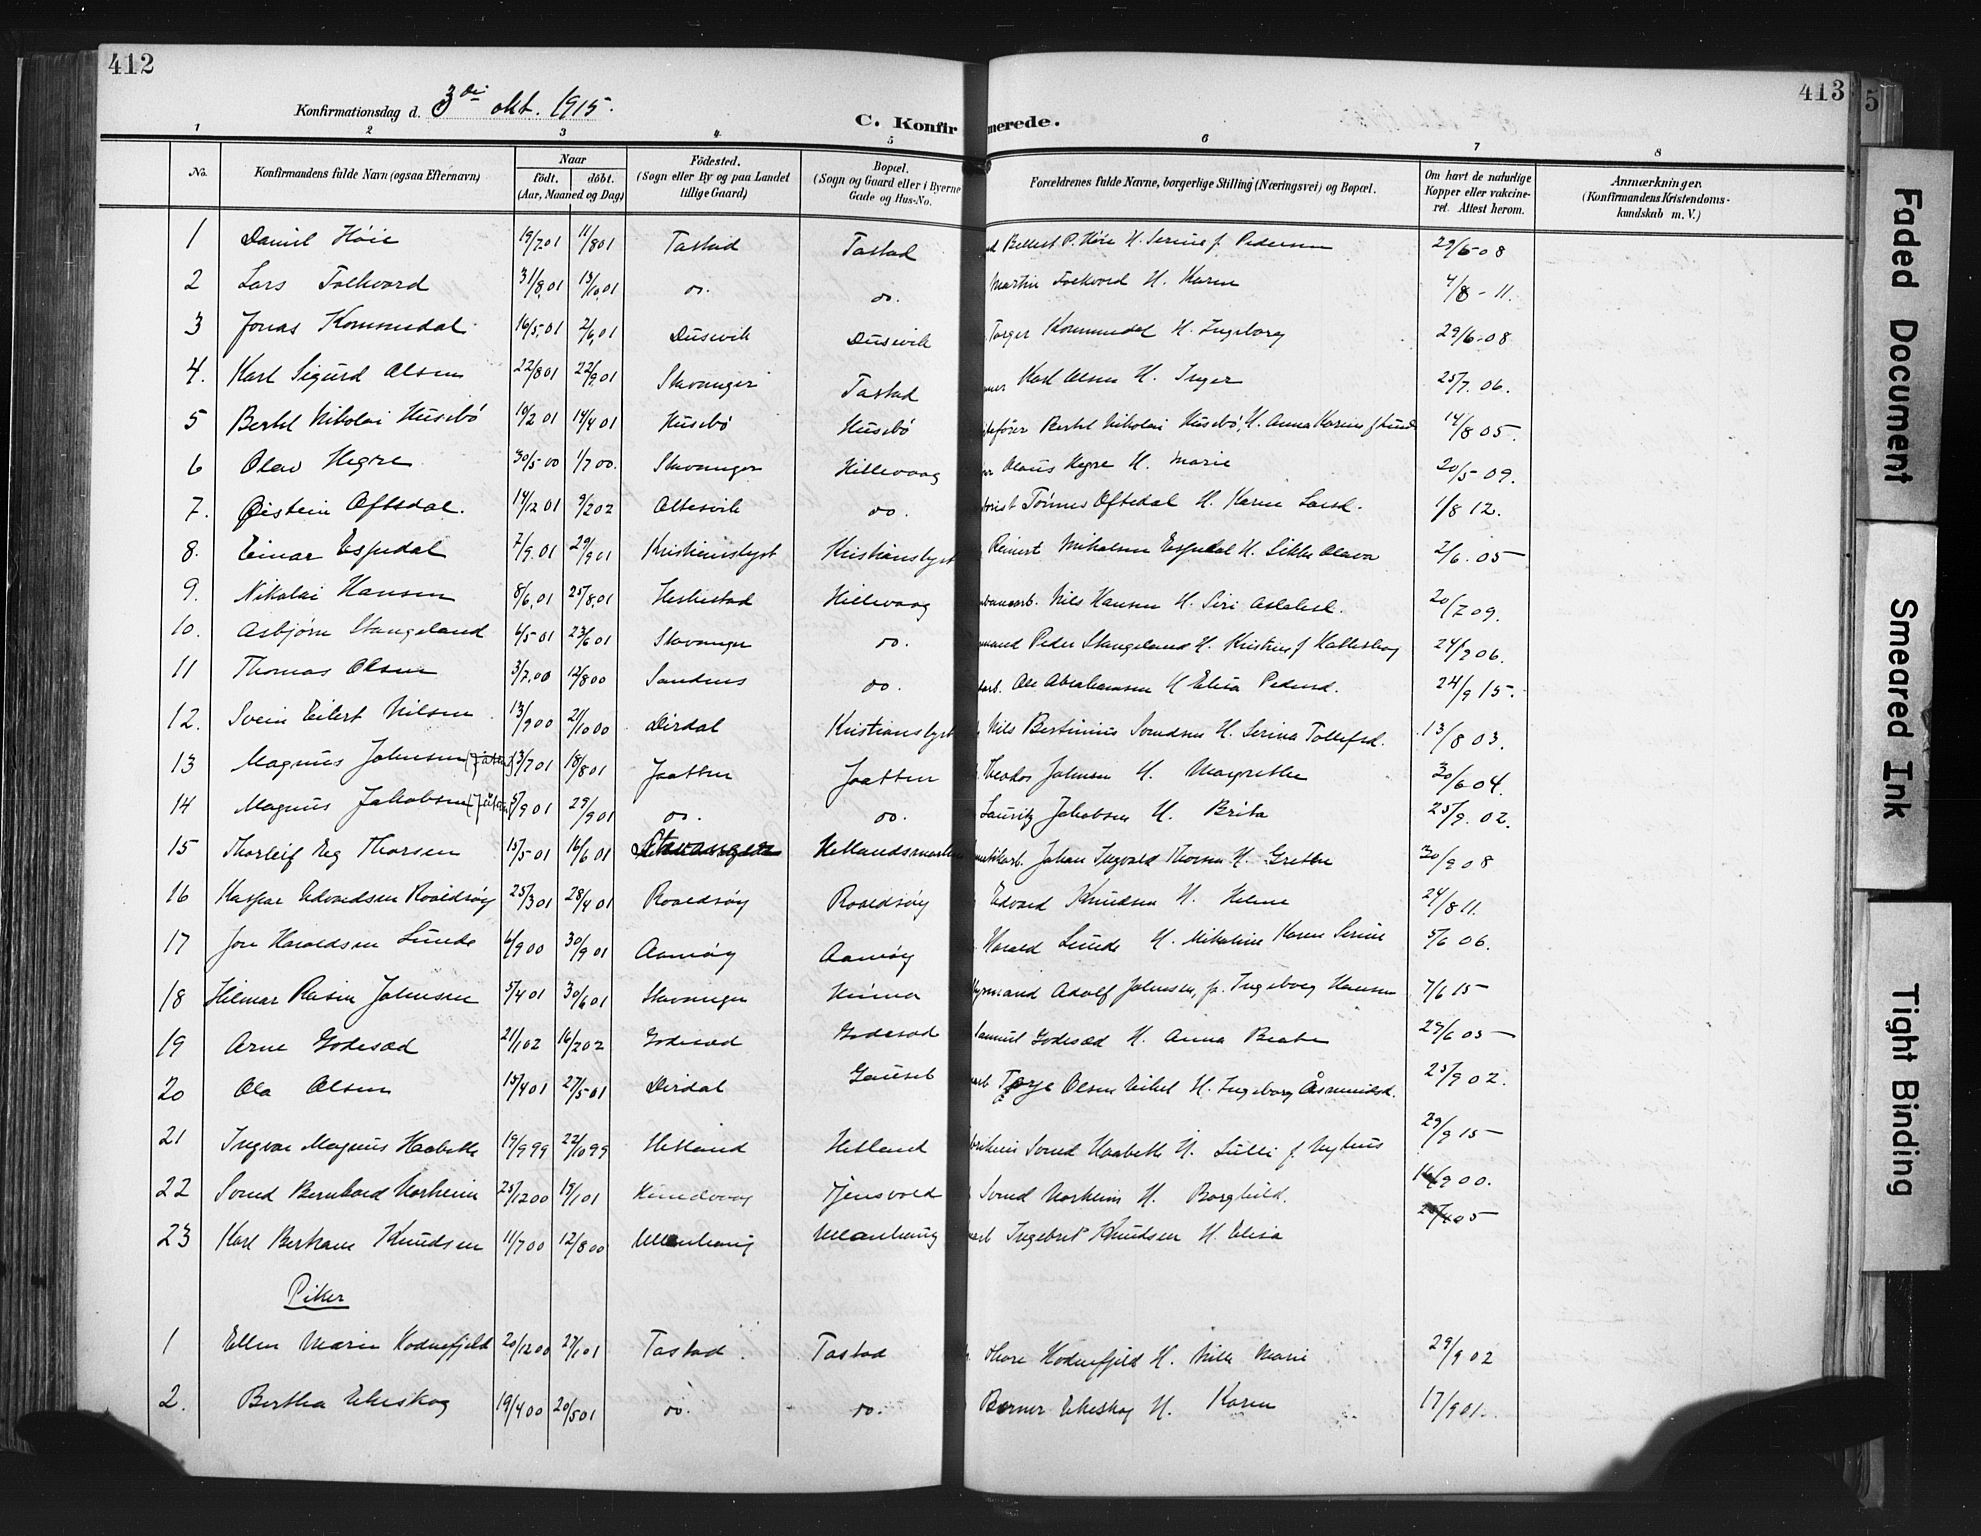 412
413
5
Konfirmationsdag d. 3die okt. 1915.
C. Konfirmerede.
1 2 3 4 5 6 7 8
No.
Konfirmandens fulde Navn (ogsaa Efternavn)
Naar
födt. döbt.
(Aar, Maaned og Dag)
Födested.
(Sogn eller By og paa Landet
tillige Gaard)
Bopæl.
(Sogn og Gaard eller i Byerne
Gade og Hus-No.
Forældrenes fulde Navne, borgerlige Stilling (Næringsvei) og Bopæl.
Om havt de naturlige
Kopper eller vakcine-
ret. Attest herom.
Anmærkninger.
(Konfirmandens Kristendoms-
kundskab m. V.)
1 Daniel Höie 19/7.01 11/8 01 Tastad Tastad P. Höie H. Serine f. Pedersen 29/6-08
2 Lars Folkvord 31/8.01 13/10.01 do. do. Martin Folkvord H. Karen 4/8-11.
3 Jonas Kommedal 16/5.01 2/6.01 Dusevik Dusevik Torger Kommedal H. Ingeborg 29/6-08
4. Karl Sigurd Olsen 22/8 01 22/9.01 Stavanger Tastad Karl Olsen H. Inger 25/7. 06.
5 Bertel Nikolai Husebö 10/2 01 14/4 01 Husebö Husebö Bertel Nikolai Husebö, H. Anna Karine f Lund 14/8 05.
6 Olav Hegre 30/5 00 1/7 00. Stavanger Hillevaag Olaus Hegre H. Marie 20/5-09.
7. Øistein Oftedal. 14/12 01 9/2 02 Altesvik do. Tönnes Oftedal H. Karen Larsd. 1/8 12.
8. Einar Espedal 7/9.01 29/9 01 Kristianslyst Kristianslyst Reinert Mikalsen Espedal H. Sikke Olava 2/6. 05
9. Nikolai Hansen 8/6.01 25/8.01 Heskestad Hillevaag Nils Hansen H. Siri Aslaksd. 20/7 09.
10. Asbjörn Stangeland 6/5 01 23/6 01 Stavanger do. Peder Stangeland H. Kristine f 24/9 06.
11 Thomas Olsen 3/7.00 12/8 00 Sandnes do. Ole Abrahamsen H Elisa Pedersd. 24/9 15.
12. Svein Eilert Nilsen 13/9 00 21/10 00 Dirdal Kristianslyst Nils Bertinius Svendsen H. Serina Tollefsd. 13/8 03.
13 Magnus Johnsen (Jåtten) 13/7 01 18/8 01 Jaatten Jaatten Theodor Johnsen H. Magrethe 30/6 04.
14 Magnus Jakobsen (Jåtten) 5/9 01 29/9 01 do. do. Lauritz Jakobsen H. Brita 25/9. 02.
15 Thorleif Reg Thorsen 15/5 01 16/6 01 Stavanger Hetlandsmarken Johan Ingvald Thorsen H. Grethe 30/9 08
16 Kaspar Edvardsen Roaldsöy 25/3 01 28/4 01 Roaldsöy Roaldsöy Edvard Knudsen H. Helene 24/8 11.
17 Jon Haraldsen Lunde 6/9 00 30/9 01 Aamöy Aamöy Harald Lunde H. Mikaline Karen Serine 5/6 06.
18 Hilmar Rasin Johnsen 5/4 01 30/6 01 Stavanger Hinna Adolf Johnsen, f. Ingeborg Hansen 7/6 15
19 Arne Godesæd 21/1 02 16/2 02 Godesæd Godesæd Samuel Godesæd H. Anna Beate 29/6 05
20 Ola Olsen 15/4 01 27/5 01 Dirdal Gausel Torje Olsen Eikel H. Ingeborg Åsmundsd. 23/9 02.
21 Ingvar Magnus Haabeth 19/9 99 22/10 99 Hetland Hetland Svend Haabeth H. Lulli f. Nyhus 29/9 15
22 Svend Bernhard Norheim 25/12 00 13/1 01 Hundvaag Tjensvold Svend Norheim H. Borghild. 14/9 00.
23 Karl Bertram Knudsen 11/7 00 12/8 00 Ullenhaug Ullenhaug Ingebret Knudsen H. Elisa 25/4 05
Piker
1 Ellen Marie Hodnefjeld 20/12 00 27/1 01 Tastad Tastad Thore Hodnefjeld H. Nille Marie 29/9 02
2. Bertha Eikeskog 19/4 00 20/5 01 do. do. Berner Eikeskog H. Karen 17/9 01.
Faded Document
Smeared Ink
Tight Binding